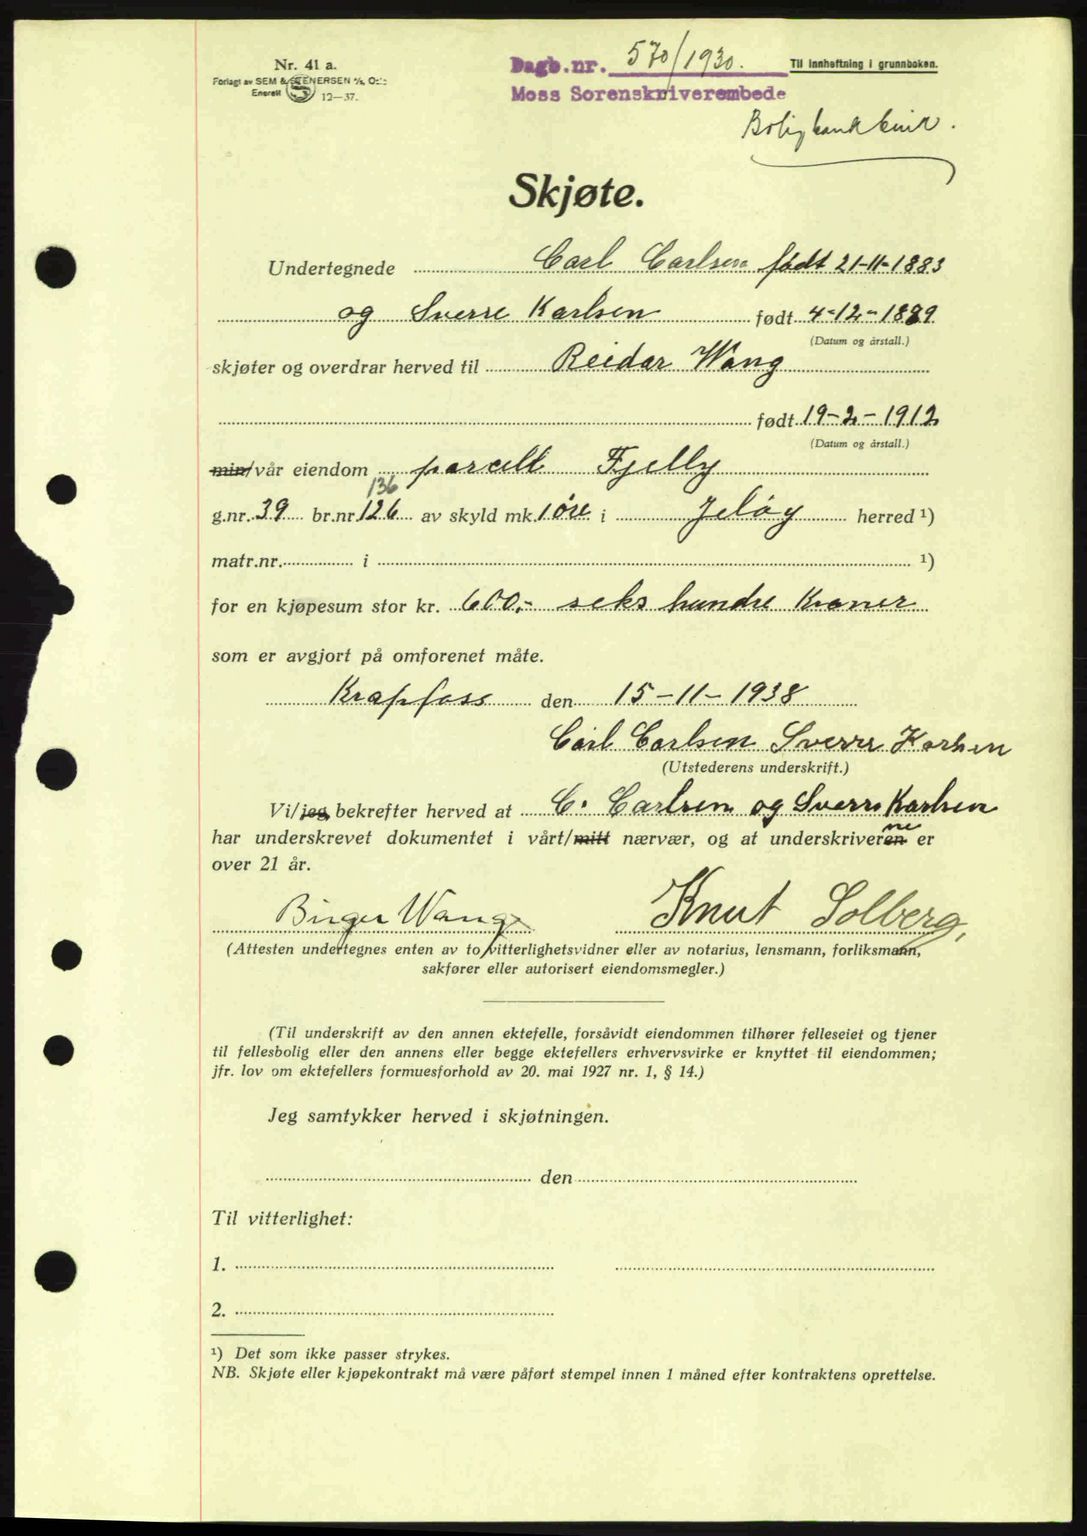 Nr. 41 a.
Forlagt av SEM & STENERSEN A/S, Oslo
Enerett 12—37.
Dagb.nr. 570/1930.
Moss Sorenskriverembede
Til innheftning i grunnboken.
Skjøte.
Undertegnede Carl Carlsen født 21-11-1883
og Sverre Karlsen født 4-12-1889
(Datum og årstall.)
skjøter og overdrar herved til Reidar Wang
født 19-2-1912
(Datum og årstall.)
min/vår eiendom parcell Fjelly
136
g.nr. 39 br.nr. 126 av skyld mk. 1 øre i Jeløy herred ¹)
matr.nr. i ¹)
for en kjøpesum stor kr. 600,- seks hundre Kroner
som er avgjort på omforenet måte.
Krapfoss den 15-11-1938
Carl Carlsen Sverre Karlsen
(Utstederens underskrift.)
Vi/jeg bekrefter herved at C. Carlsen og Sverre Karlsen
har underskrevet dokumentet i vårt/mitt nærvær, og at underskriveren ne er
over 21 år.
Birger Wang Knut Solberg,
(Attesten undertegnes enten av to vitterlighetsvidner eller av notarius, lensmann, forliksmann,
sakfører eller autorisert eiendomsmegler.)
(Til underskrift av den annen ektefelle, forsåvidt eiendommen tilhører felleseiet og tjener
til fellesbolig eller den annens eller begge ektefellers erhvervsvirke er knyttet til eiendommen;
jfr. lov om ektefellers formuesforhold av 20. mai 1927 nr. 1, § 14.)
Jeg samtykker herved i skjøtningen.
den
Til vitterlighet:
1.
2.
¹) Det som ikke passer strykes.
NB. Skjøte eller kjøpekontrakt må være påført stempel innen 1 måned efter kontraktens oprettelse.